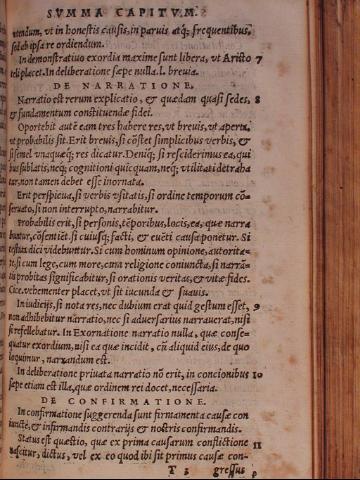 SVMMA CAPITVM.
tuendum, vt in honestis causis, in paruis atq; frequentibus,
sed ab ipsa re ordiendum.
In demonstratiuo exordia maxime sunt libera, vt Aristo 7
teli placet. In deliberatione sæpe nulla. l. breuia.
DE NARRATIONE.
Narratio est rerum explicatio, & quædam quasi sedes, 8
& fundamentum constituendæ fidei.
Oportebit autē eam tres habere res, vt breuis, vt aperta,
vt probabilis sit. Erit breuis, si cōstet simplicibus verbis, &
si semel vnaquæq; res dicatur. Deniq; si rescideris ea, qui
bus sublatis, neq; cognitioni quicquam, neq; vtilitati detraha
tur, non tamen debet esse inornata.
Erit perspicua, si verbis vsitatis, si ordine temporum cō-
seruato, si non interrupto, narrabitur.
Probabilis erit, si personis, tēporibus, locis, ea, quæ narra
buntur, cōsentiēt. si cuiusq; facti, & euēti causa ponetur. Si
testata dici videbuntur. Si cum hominum opinione, autorita-
te, si cum lege, cum more, cum religione coniuncta, si narrā-
tis probitas significabitur, si orationis veritas, & vitæ fides.
Cice. vehementer placet, vt sit iucunda & suauis.
In iudicijs, si nota res, nec dubium erat quid gestum esset, 9
non adhibebitur narratio, nec si aduersarius narrauerat, nisi
si refellebatur. In Exornatione narratio nulla, quæ conse-
quatur exordium, nisi ea quæ incidit, cū aliquid eius, de quo
loquimur, narrandum est.
In deliberatione priuata narratio nō erit, in concionibus 10
sæpe etiam est illa, quæ ordinem rei docet, necessaria.
DE CONFIRMATIONE.
In confirmatione suggerenda sunt firmamenta causæ con
iunctè, & infirmandis contrarijs & nostris confirmandis.
Status est quæstio, quæ ex prima causarum conflictione 11
nascitur, dictus, vel ex eo quod ibi sit primus causæ con-
T 3 gressus